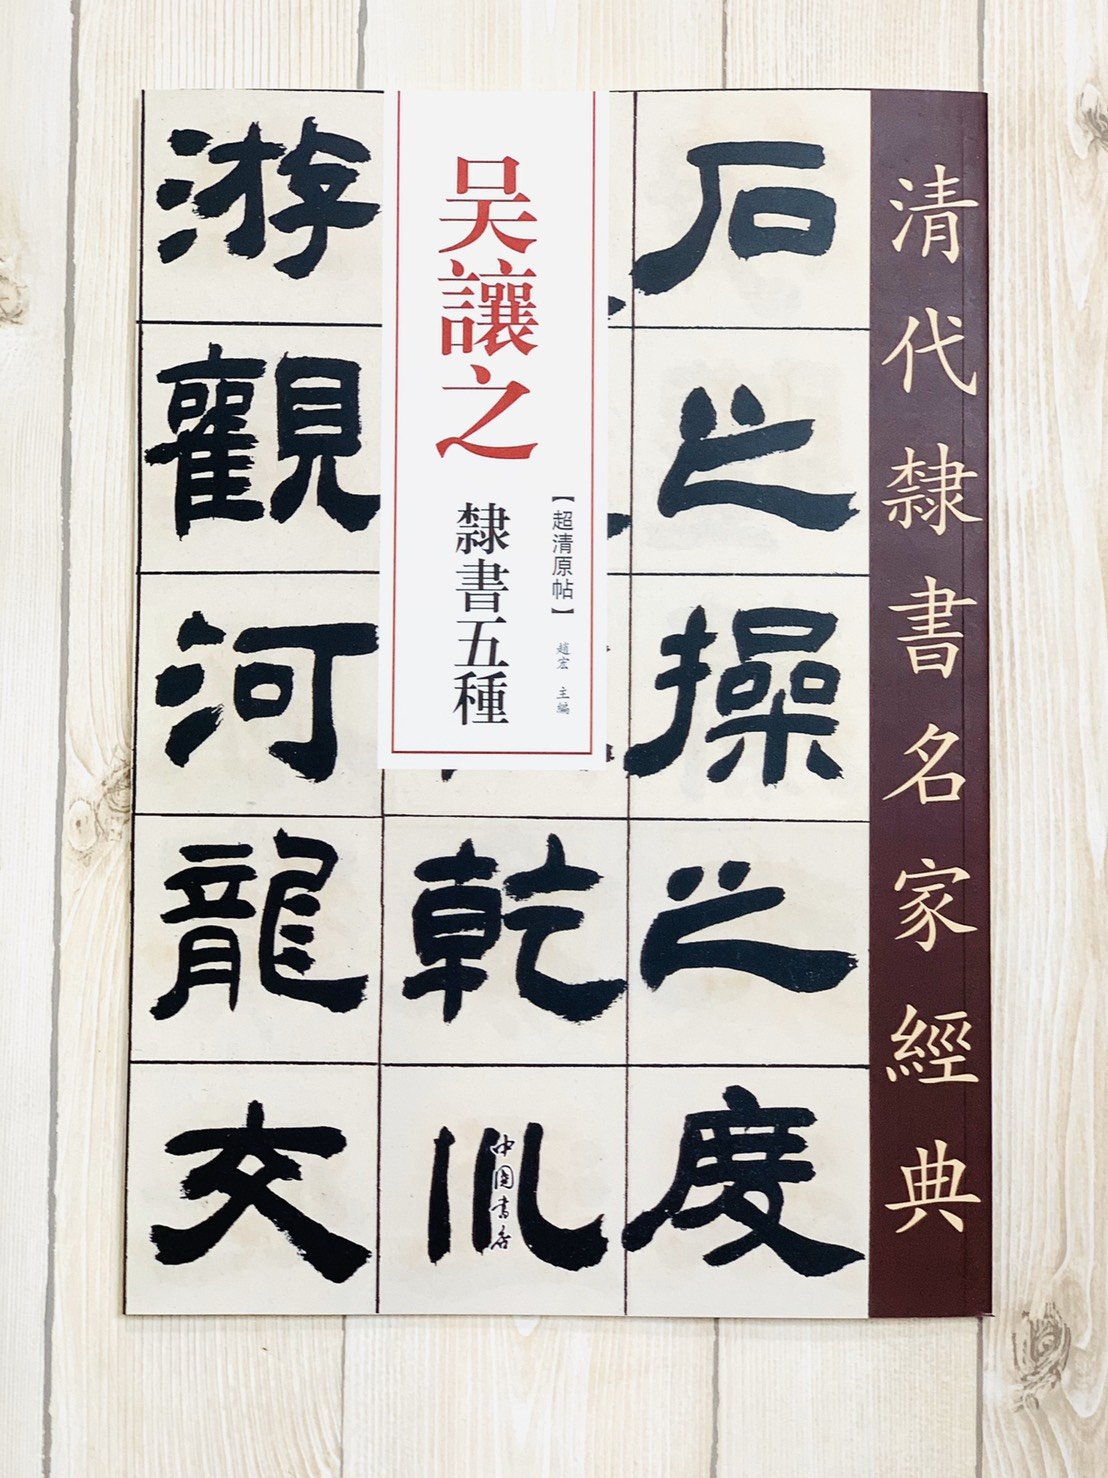 清代隸書名家經典
石之操之度
乾川
游觀河龍交
【超清原帖】
趙宏 主編
吴讓之
隸書五種
中國書店